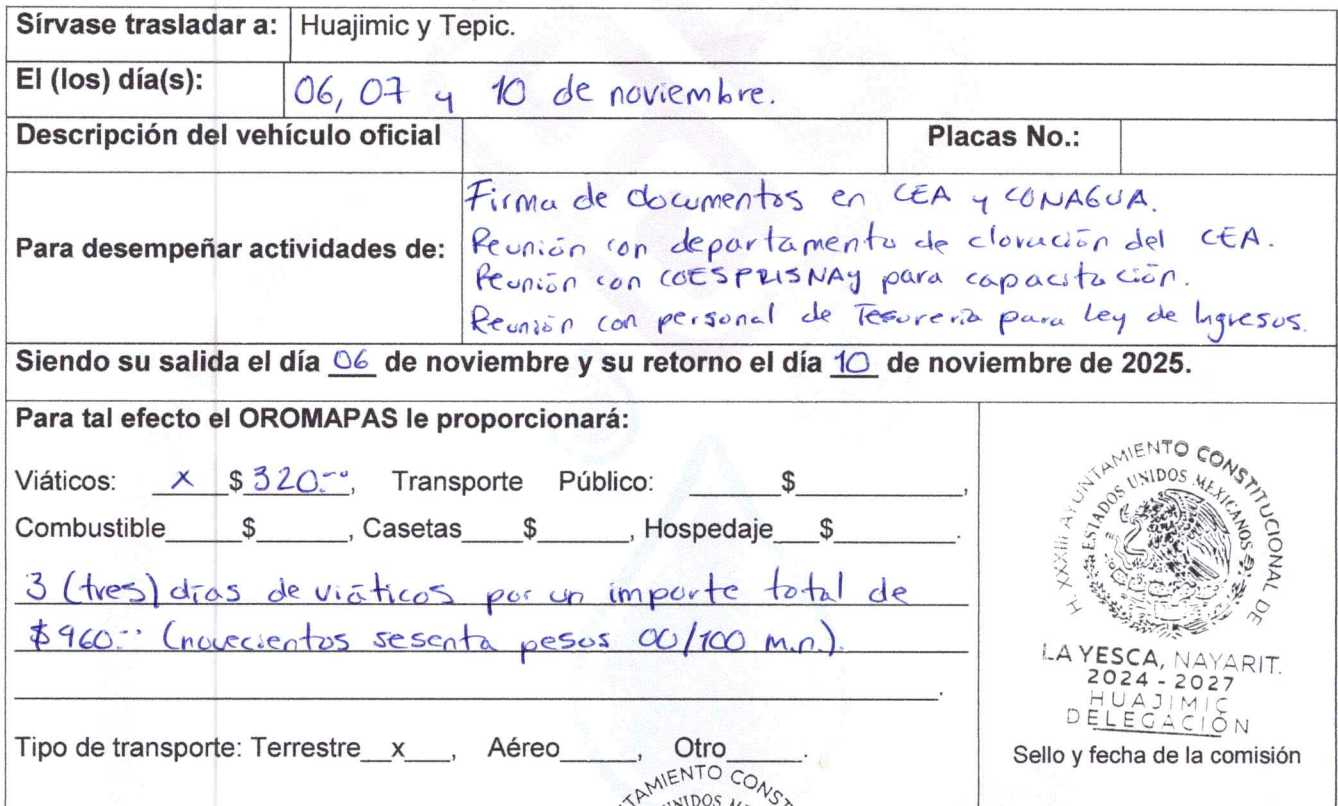 Sírvase trasladar a: Huajimic y Tepic.
El (los) día(s): 06, 07 y 10 de noviembre.
Descripción del vehículo oficial Placas No.:
Para desempeñar actividades de:
Firma de documentos en CEA y CONAGUA.
Reunión con departamento de cloración del CEA.
Reunión con COESPRISNAY para capacitación.
Reunión con personal de Tesorería para Ley de Ingresos.
Siendo su salida el día 06 de noviembre y su retorno el día 10 de noviembre de 2025.
Para tal efecto el OROMAPAS le proporcionará:
Viáticos: x $320.00, Transporte Público: ______$____________,
Combustible______$______, Casetas_____$______, Hospedaje___$________.
3 (tres) días de viáticos por un importe total de
$960.00 (novecientos sesenta pesos 00/100 m.n.).
Tipo de transporte: Terrestre__x___, Aéreo_____, Otro_____.
H. XXXIII AYUNTAMIENTO CONSTITUCIONAL DE
ESTADOS UNIDOS MEXICANOS
LA YESCA, NAYARIT.
2024 - 2027
HUAJIMIC
DELEGACIÓN
Sello y fecha de la comisión